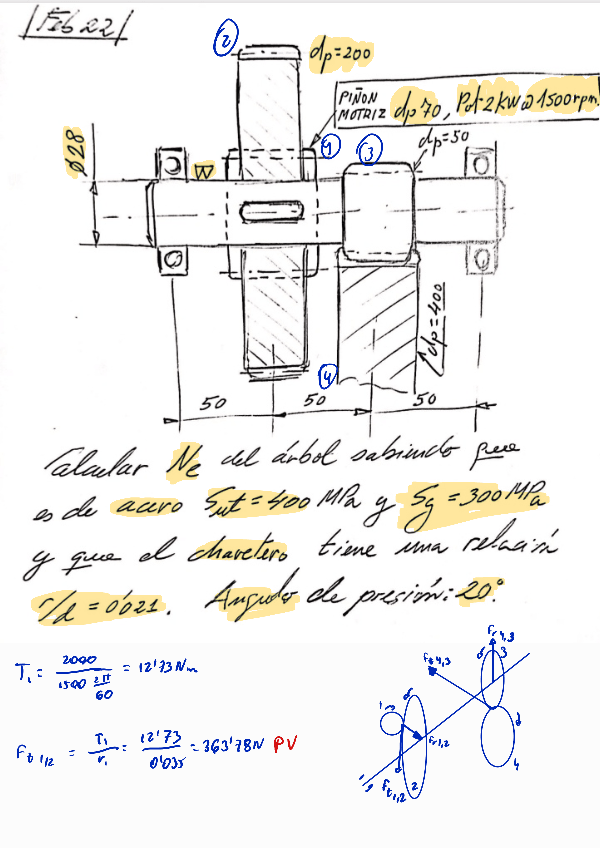 Feb 22
2
dp=200
PIÑON
MOTRIZ dp 70, Pot 2 kW @ 1500 rpm.
1
3
dp=50
Ø28
4
dp=400
50 50 50
Calcular Ne del árbol sabiendo que
es de acero Sut = 400 MPa y Sy = 300 MPa
y que el chavetero tiene una relación
r/d = 0'021. Angulo de presión: 20°.
T1 = 2000 / (1500 2π/60) = 12'73 Nm
Ft 1,2 = T1/r1 = 12'73/0'035 = 363'78N PV
Fr 4,3
3
Ft 4,3
1
Fr 1,2
4
Ft 1,2
2